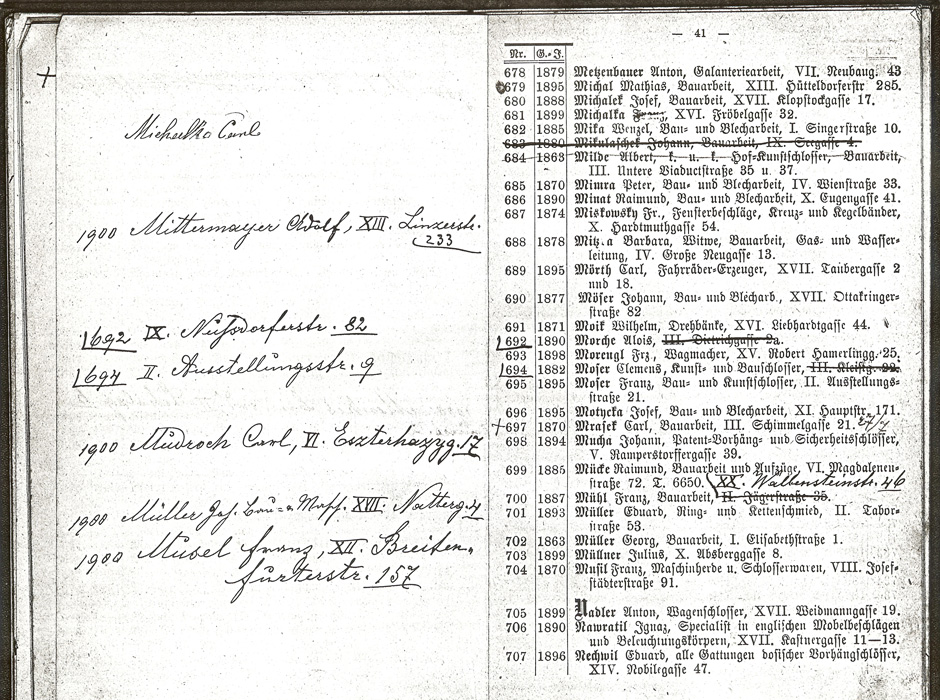 +
Michalko Carl
1900 Mittermayer Adolf, XIII. Linzerstr.
233
692 IX. Nußdorferstr. 82
694 II. Ausstellungsstr. 9
1900 Mudroch Carl, VI. Eszterhazyg. 17
1900 Müller Jos. Bau= u Masch. XVII. Natterg. 4
1900 Musel Franz, XII. Breiten-
furterstr. 157
— 41 —
Nr. G.-J.
678 1879 Metzenbauer Anton, Galanteriearbeit, VII. Neubaug. 43
679 1895 Michal Mathias, Bauarbeit, XIII. Hütteldorferstr 285.
680 1888 Michalek Josef, Bauarbeit, XVII. Klopstockgasse 17.
681 1899 Michalka Franz, XVI. Fröbelgasse 32.
682 1885 Mika Wenzel, Bau- und Blecharbeit, I. Singerstraße 10.
683 1880 Mikulaschek Johann, Bauarbeit, IX. Seegasse 4.
684 1863 Milde Albert, k. u. k. Hof-Kunstschlosser, Bauarbeit,
III. Untere Viaductstraße 35 u. 37.
685 1870 Mimra Peter, Bau- und Blecharbeit, IV. Wienstraße 33.
686 1890 Minat Raimund, Bau- und Blecharbeit, X. Eugengasse 41.
687 1874 Miskowsky Fr., Fensterbeschläge, Kreuz- und Kegelbänder,
X. Hardtmuthgasse 54.
688 1878 Mitz.a Barbara, Witwe, Bauarbeit, Gas- und Wasser-
leitung, IV. Große Neugasse 13.
689 1895 Mörth Carl, Fahrräder-Erzeuger, XVII. Taubergasse 2
und 18.
690 1877 Möser Johann, Bau- und Blecharb., XVII. Ottakringer-
straße 82.
691 1871 Moik Wilhelm, Drehbänke, XVI. Liebhardtgasse 44.
692 1890 Morche Alois, III. Dietrichgasse 2a.
693 1898 Morengl Frz., Wagmacher, XV. Robert Hamerlingg. 25.
694 1882 Moser Clemens, Kunst- und Bauschlosser, III. Kleistg. 22.
695 1895 Moser Franz, Bau- und Kunstschlosser, II. Ausstellungs-
straße 21.
696 1895 Motycka Josef, Bau- und Blecharbeit, XI. Hauptstr. 171.
+ 697 1870 Mrasek Carl, Bauarbeit, III. Schimmelgasse 21.
698 1894 Mucha Johann, Patent-Vorhäng- und Sicherheitsschlösser,
V. Ramperstorffergasse 39.
699 1885 Mücke Raimund, Bauarbeit und Aufzüge, VI. Magdalenen-
straße 72. T. 6650. XX. Wallensteinstr. 46
700 1887 Mühl Franz, Bauarbeit, II. Jägerstraße 35.
701 1893 Müller Eduard, Ring- und Kettenschmied, II. Tabor-
straße 53.
702 1863 Müller Georg, Bauarbeit, I. Elisabethstraße 1.
703 1899 Müllner Julius, X. Absberggasse 8.
704 1870 Musil Franz, Maschinherde u. Schlosserwaren, VIII. Josef-
städterstraße 91.
705 1899 Nadler Anton, Wagenschlosser, XVII. Weidmanngasse 19.
706 1890 Nawratil Ignaz, Specialist in englischen Möbelbeschlägen
und Beleuchtungskörpern, XVII. Kastnergasse 11—13.
707 1896 Nechwil Eduard, alle Gattungen dosischer Vorhängschlösser,
XIV. Nobilegasse 47.